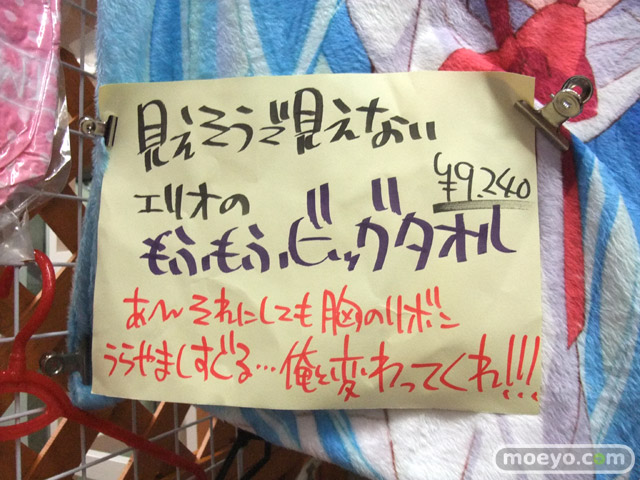 見えそうで見えない
¥9,240
エリオの
もふもふビッグタオル
あ〜んそれにしても胸のリボン
うらやましすぎる…俺と変わってくれ!!!
moeyo.com